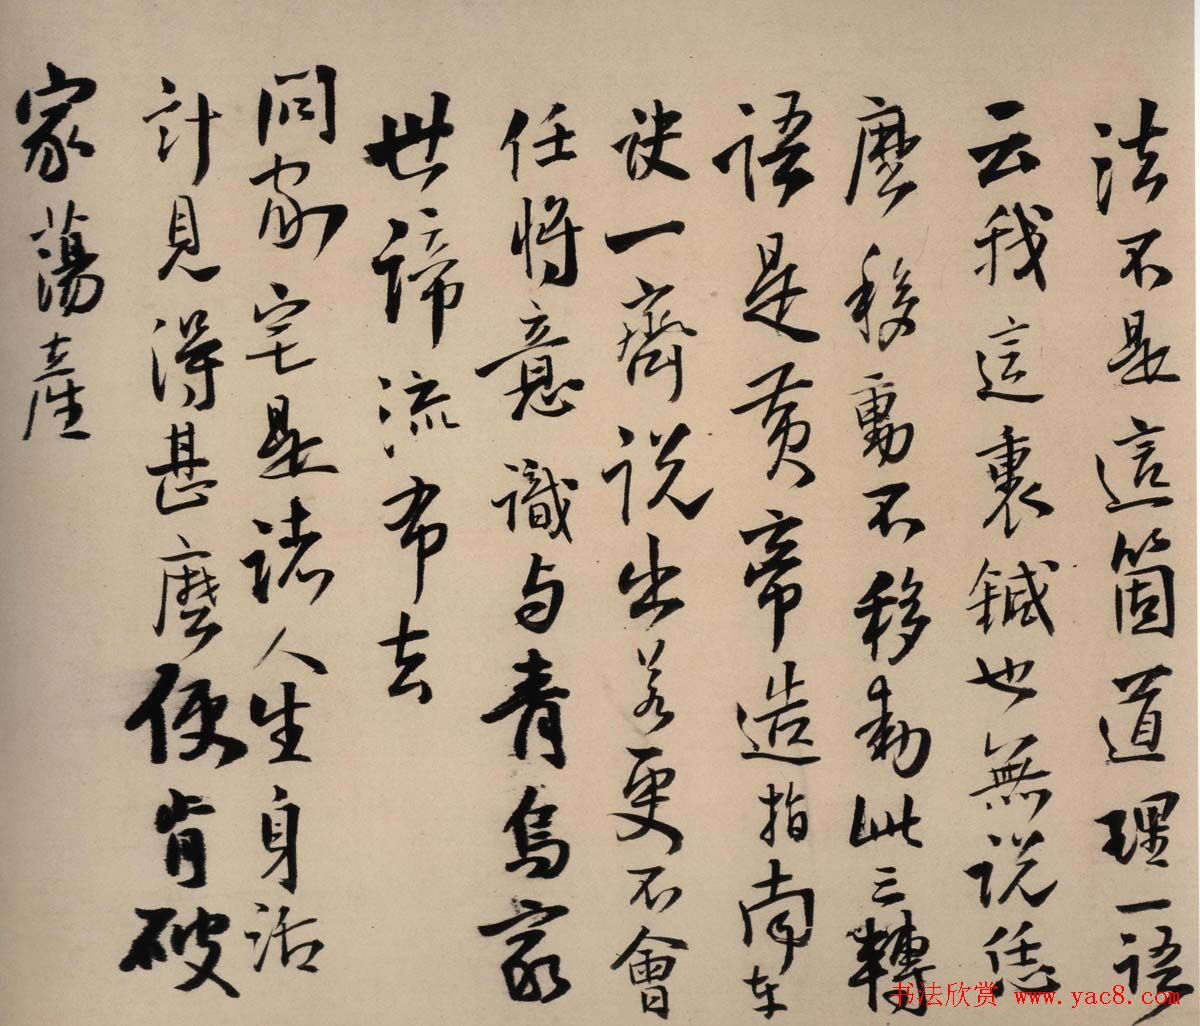 法不是這箇道理一語
云我這裏鍼也無說恁
麼移動不移移動此三轉
語是黃帝造指南車
訣一齊說出若更不會
任將意識与青烏家
世諦流布去
問家宅是諸人生身活
計見得甚麼便肯破
家蕩產
书法欣赏 www.yac8.com